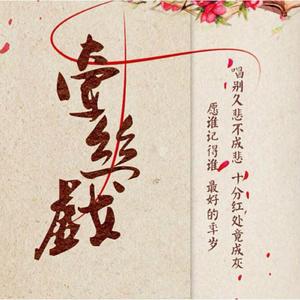 牵丝戲
唱别久悲不成悲 十分红处竟成灰
愿谁记得谁 最好的年岁